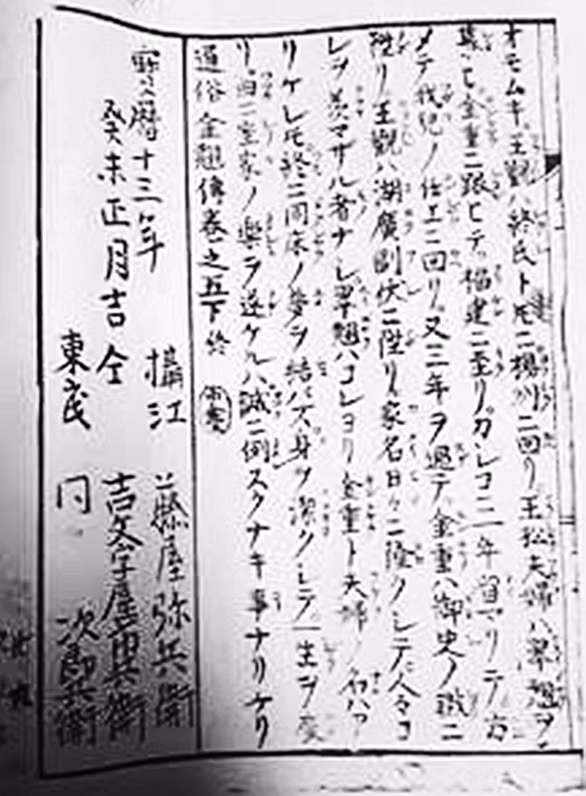 オモムキ王觀ハ終氏ト共ニ楊州ニ回リ王松夫婦ハ翠翹ヲ
慕ヒ金重ニ跟ヒテ福建ニ至リカシコニ二年留マリテ方
メテ我兒ノ任エニ回リ又三年ヲ過テ金重ハ御史ノ職ニ
陞リ王觀ハ湖廣副使ニ陞リ家名日々ニ隆クシテ人々コ
レヲ羨マザル者ナシ翠翹ハコレヨリ金重ト夫婦ノ名ハア
リケレ𪜈終ニ同床ノ夢ヲ結バズ身ヲ潔クシテ一生ヲ
リ曲ニ室家ノ樂ヲ遂ケルハ誠ニ例スクナキ事ナリケリ
通俗金翹傳卷之五下終
寶暦十三年
癸未正月吉
攝江 藤屋弥兵衛
仝 吉文字屋市兵衛
東武 同 次郎兵衛